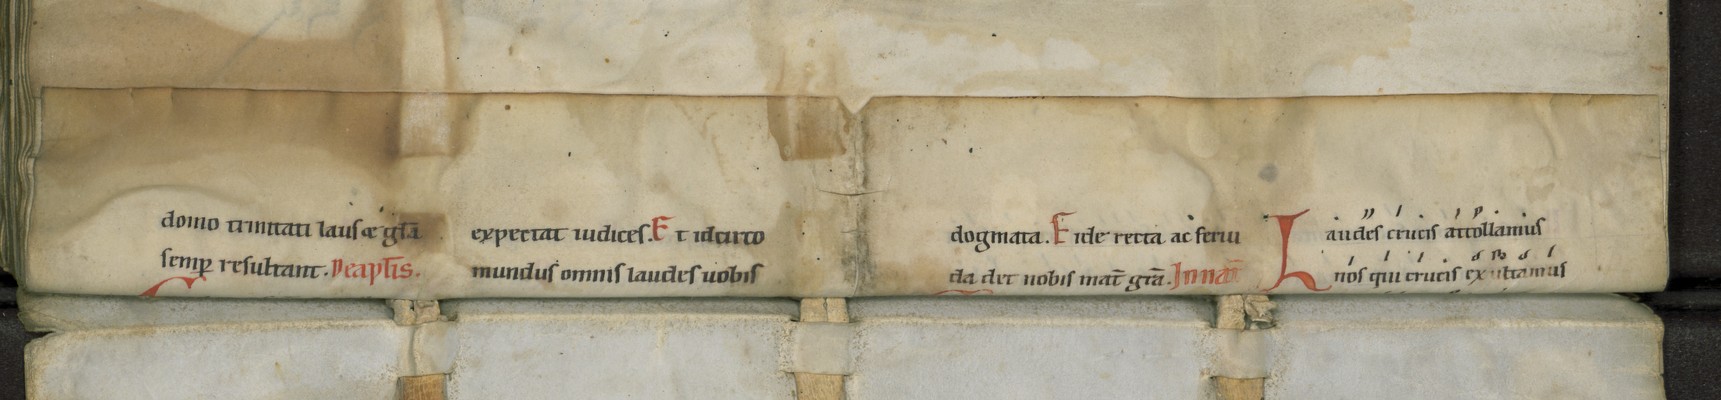 domo trinitati laus & gl̄a
semꝑ resultant. De apl̄is.
expectat iudices. Et idcirco
mundus omnis laudes uobis
dogmata. Fide recta ac ferui
da det nobis mat̄ gr̄a. In nat̄
Laudes crucis attollamus
nos qui crucis exultamus